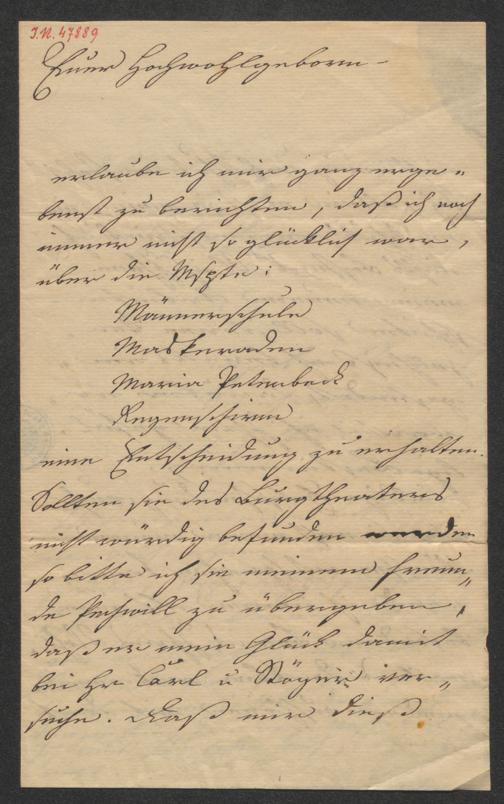 I.N. 47889
Euer Hochwohlgeborn
erlaube ich mir ganz erge-
benst zu berichten, daß ich noch
immer nicht so glücklich war,
über die Mspte:
Männerschule
Maskeraden
Maria Petenbeck
Regenschirm
eine Entscheidung zu erhalten.
Sollten sie des Burgtheaters
nicht würdig befunden werden
so bitte ich sie meinem Freun-
de zu übergeben,
daß er mein Glück damit
bei Hr Carl u Stöger ver-
suche. Daß mir dieß